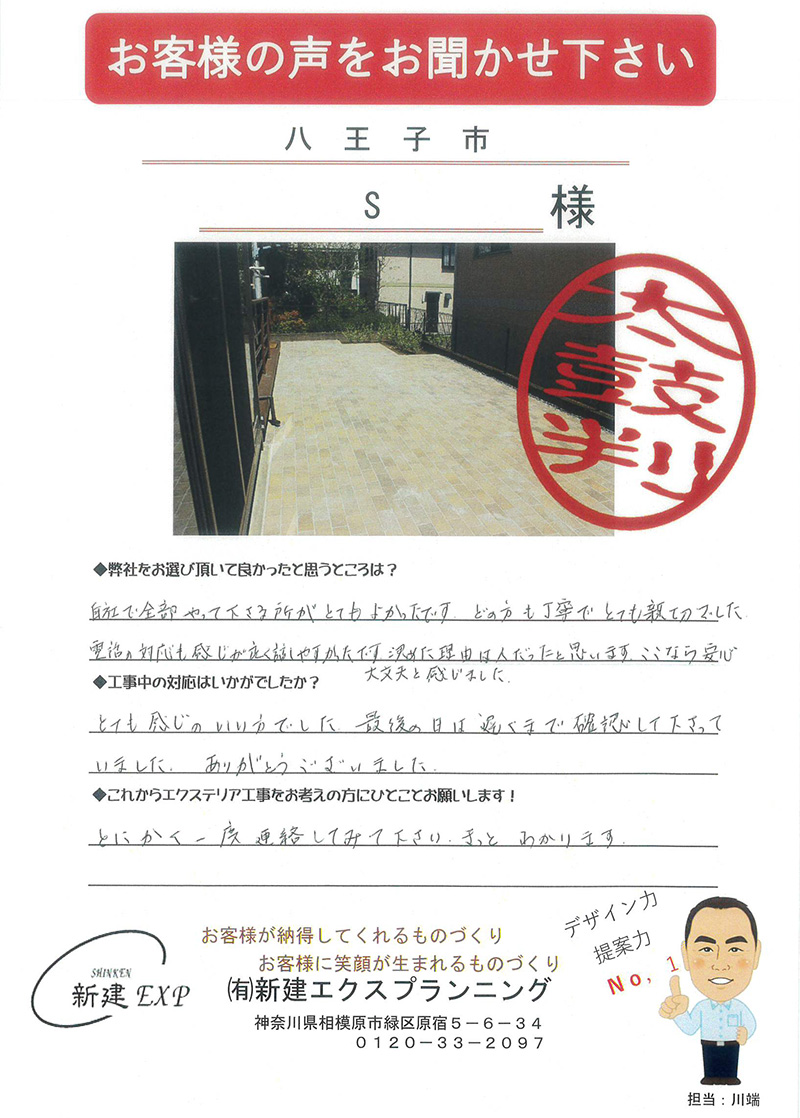 お客様の声をお聞かせ下さい
八王子市
S 様
太鼓判
◆弊社をお選び頂いて良かったと思うところは？
自社で全部やって下さる所がとてもよかったです。どの方も丁寧でとても親切でした
電話の対応も感じが良く話しやすかったです。決めた理由は人だったと思います。ここなら安心
大丈夫と感じました。
◆工事中の対応はいかがでしたか？
とても感じのいい方でした。最後の日は遅くまで確認して下さって
いました。ありがとうございました。
◆これからエクステリア工事をお考えの方にひとことお願いします！
とにかく一度連絡してみて下さい。きっとわかります。
お客様が納得してくれるものづくり
お客様に笑顔が生まれるものづくり
SHINKEN
新建 EXP
㈲新建エクスプランニング
神奈川県相模原市緑区原宿５－６－３４
０１２０－３３－２０９７
デザイン力
提案力
No，1
担当：川端